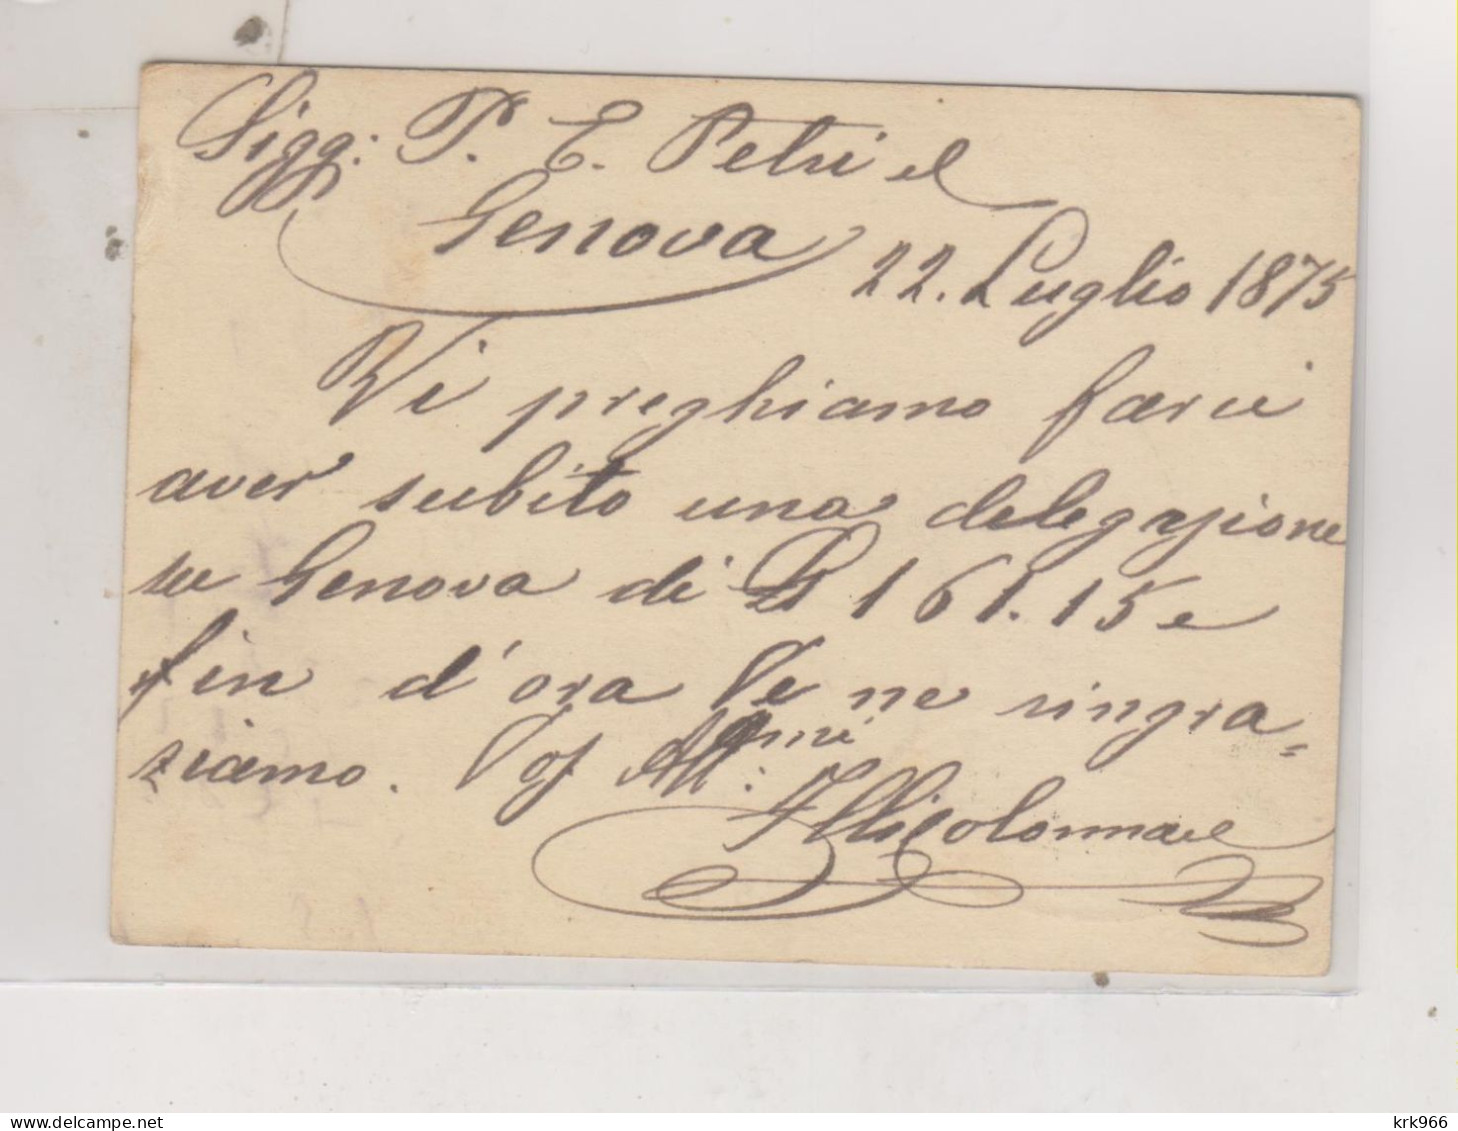 Sigg: P. E. Petri el
Genova
22. Luglio 1875
Vi preghiamo farci
aver subito una delegazione
su Genova di L 161.15 e
fin d'ora Ve ne ringra=
ziamo. Vof All: mi
Flli Colonna
krk966